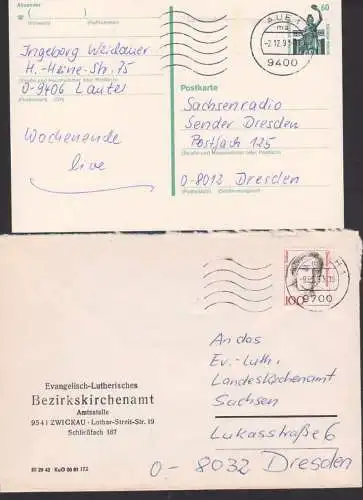 Absender
60
AUE 1
mb
9400
Ingeborg Weidauer
H.-Heine-Str. 75
(Straße und Hausnummer oder Postfach)
O-9406 Lauter
(Postleitzahl) (Ort)
Wochenende
live
Postkarte
Sachsenradio
Sender Dresden
Postfach 125
(Straße und Hausnummer oder Postfach)
O-8012 Dresden
(Postleitzahl) (Bestimmungsort)
100
9700
Evangelisch-Lutherisches
Bezirkskirchenamt
Amtsstelle
9541 ZWICKAU · Lothar-Streit-Str. 19
Schließfach 167
An das
Ev.-Luth.
Landeskirchenamt
Sachsen
Lukasstraße 6
O- 8032 Dresden